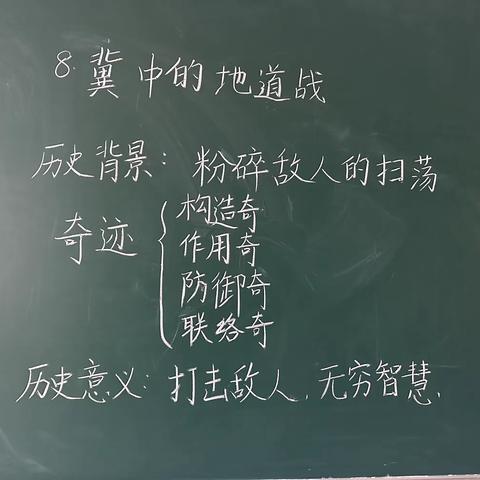 8.冀中的地道战
历史背景：粉碎敌人的扫荡
奇迹
构造奇
作用奇
防御奇
联络奇
历史意义：打击敌人.无穷智慧.